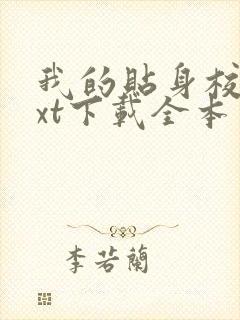 我的貼身校
xt下載全本
李若蘭